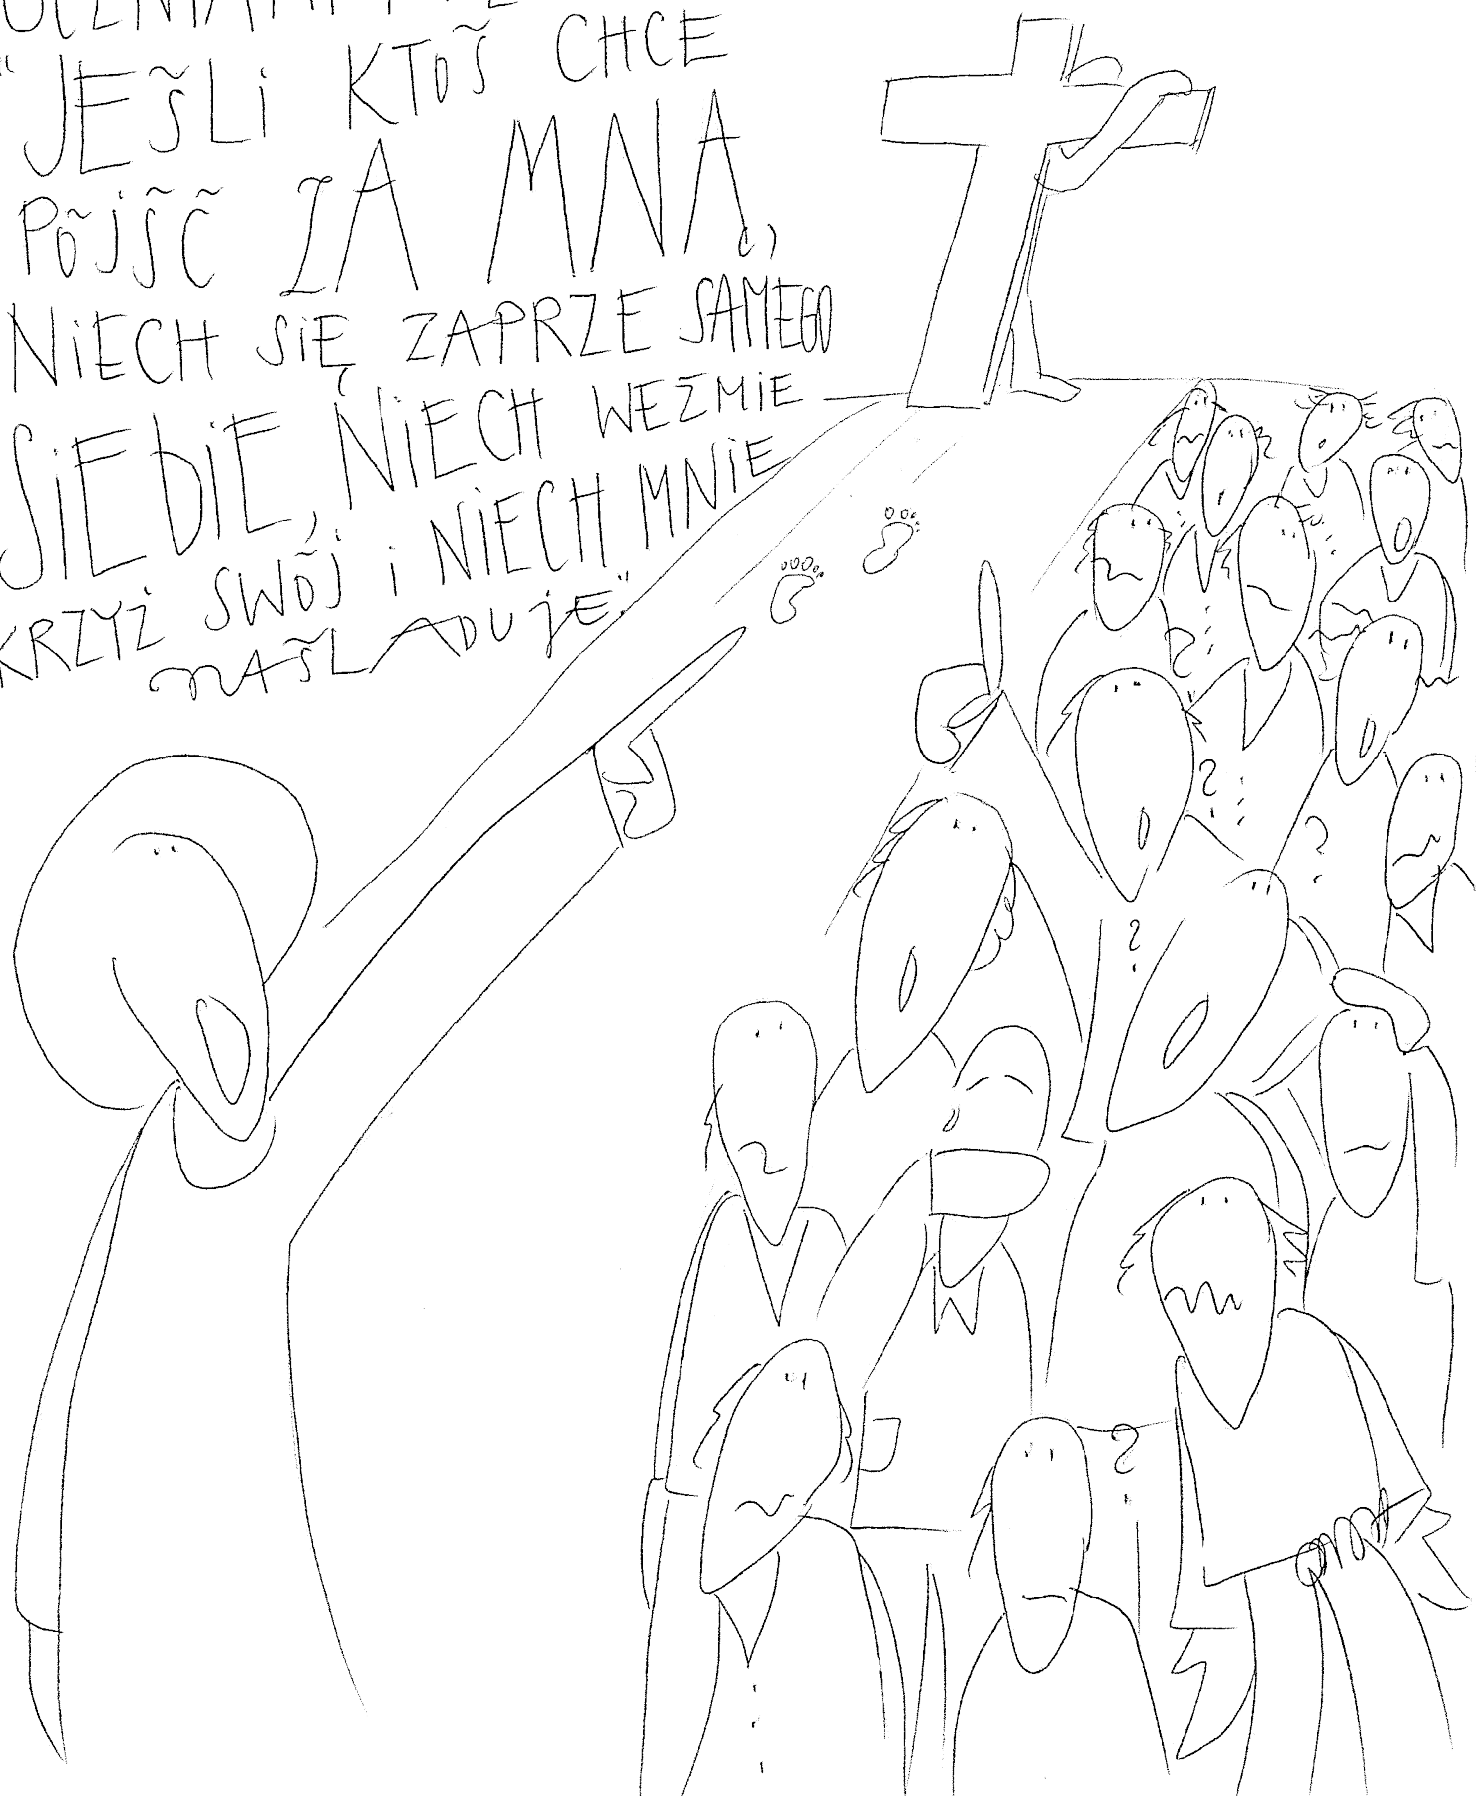 "JEŚLI KTOŚ CHCE
PÓJŚĆ ZA MNĄ,
NIECH SIĘ ZAPRZE SAMEGO
SIEBIE, NIECH WEŹMIE
KRZYŻ SWÓJ i NIECH MNIE
NAŚLADUJE."
?
?
?
?
?
?